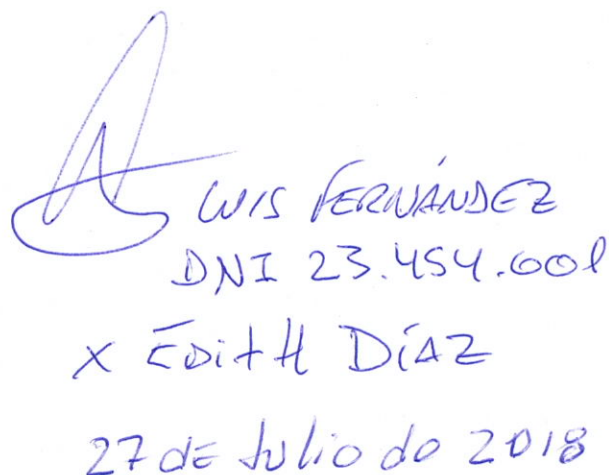 LUIS FERNÁNDEZ
DNI 23.454.001
X EDitH DíAZ
27 de Julio do 2018